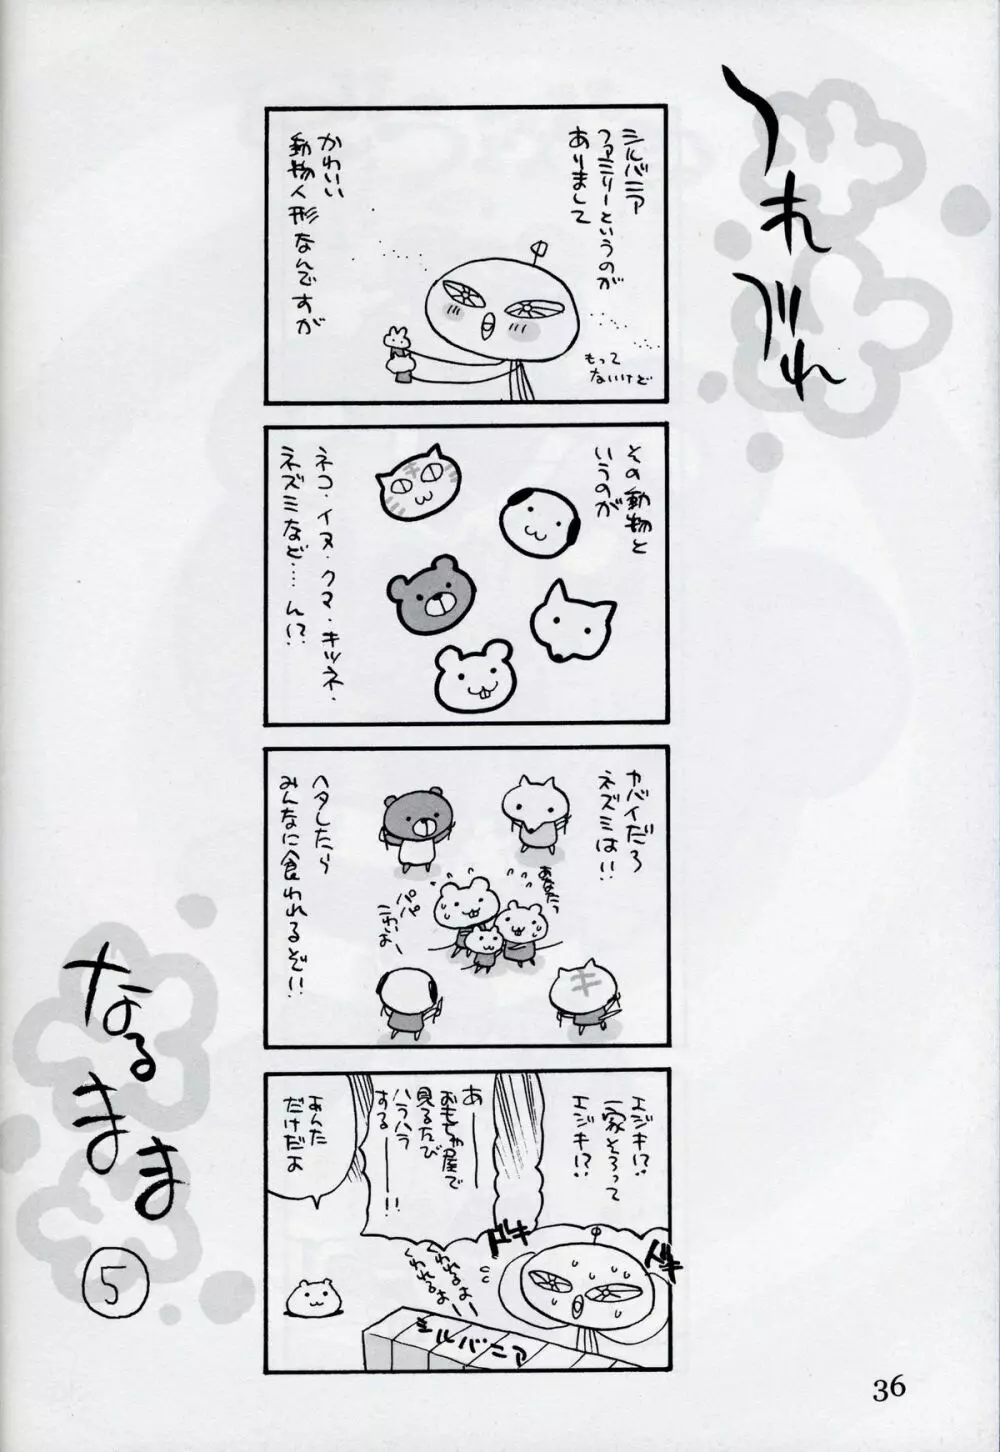 つれづれ
なるまま
5
シルバニア
ファミリーというのが
ありまして
かわいい
動物人形なんですが
もって
ないけど
その動物と
いうのが
ネコ・イヌ・クマ・キツネ・
ネズミなど……ん!?
ヤバイだろ
ネズミは!!
あなたっ
パパ
こわいよー
ヘタしたら
みんなに食われるぞ!!
エジキ!?
一家そろって
エジキ!?
あーー
おもちゃ屋で
見るたび
ハラハラ
するーー!!
あんた
だけだよ
ドキ
ドキ
くわれるよー
くわれるよー
シルバニア
36